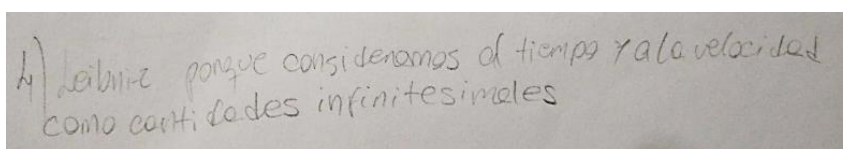 4) Leibniz porque consideramos al tiempo y a la velocidad
como cantidades infinitesimales